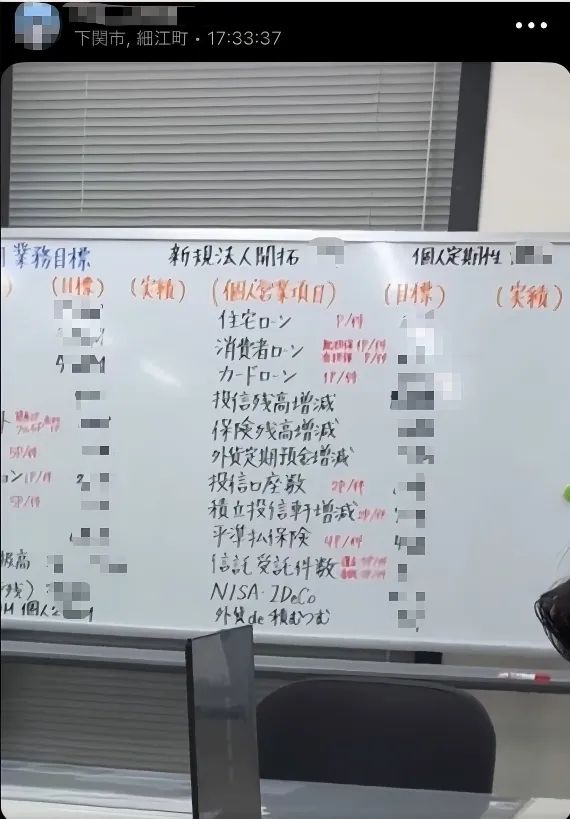 下関市, 細江町・17:33:37
業務目標 新規法人開拓 個人定期性
(目標) (実績) (個人営業項目) (目標) (実績)
住宅ローン P/件
消費者ローン 無担保 1P/件 有担保 P/件
カードローン 1P/件
投信残高増減
保険残高増減
外貨定期預金増減
5P/件 投信口座数 2P/件
ョン 1P/件 積立投信軒増減 2P/件
5P/件 平準払保険 4P/件
信託受託件数
高
NISA・IDeCo
残)
外貨de積むつむ
個人